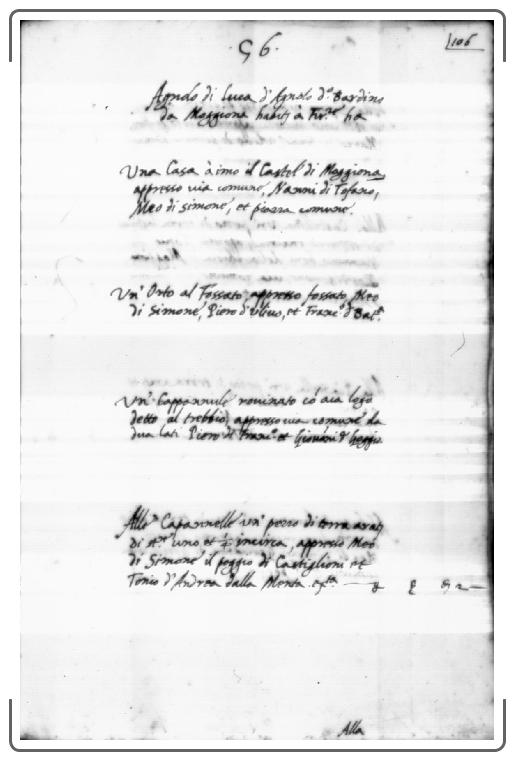 .56.
106
Agnolo di Luca d'Agnolo d.o Bardino
da Moggiona habit.e à ha
Una Casa à imo il Castel di Moggiona
appresso via comune, Nanni di Tofano,
Meo di Simone, et piazza comune.
Un' Orto al Fossato appresso fossato Meo
di Simone, Piero d' et Franc.o d' Bat.a
Un' Capannule rovinato cò aia logo
detto al trebbio, appresso via comune da
dua lati Piero di Franc.o et Giovani d'
Alle Capannelle un' pezzo di terra
di uno et ½ incirca, appresso Meo
di Simone il poggio di Castiglioni et
Tonio d'Andrea dalla Menta
Alla